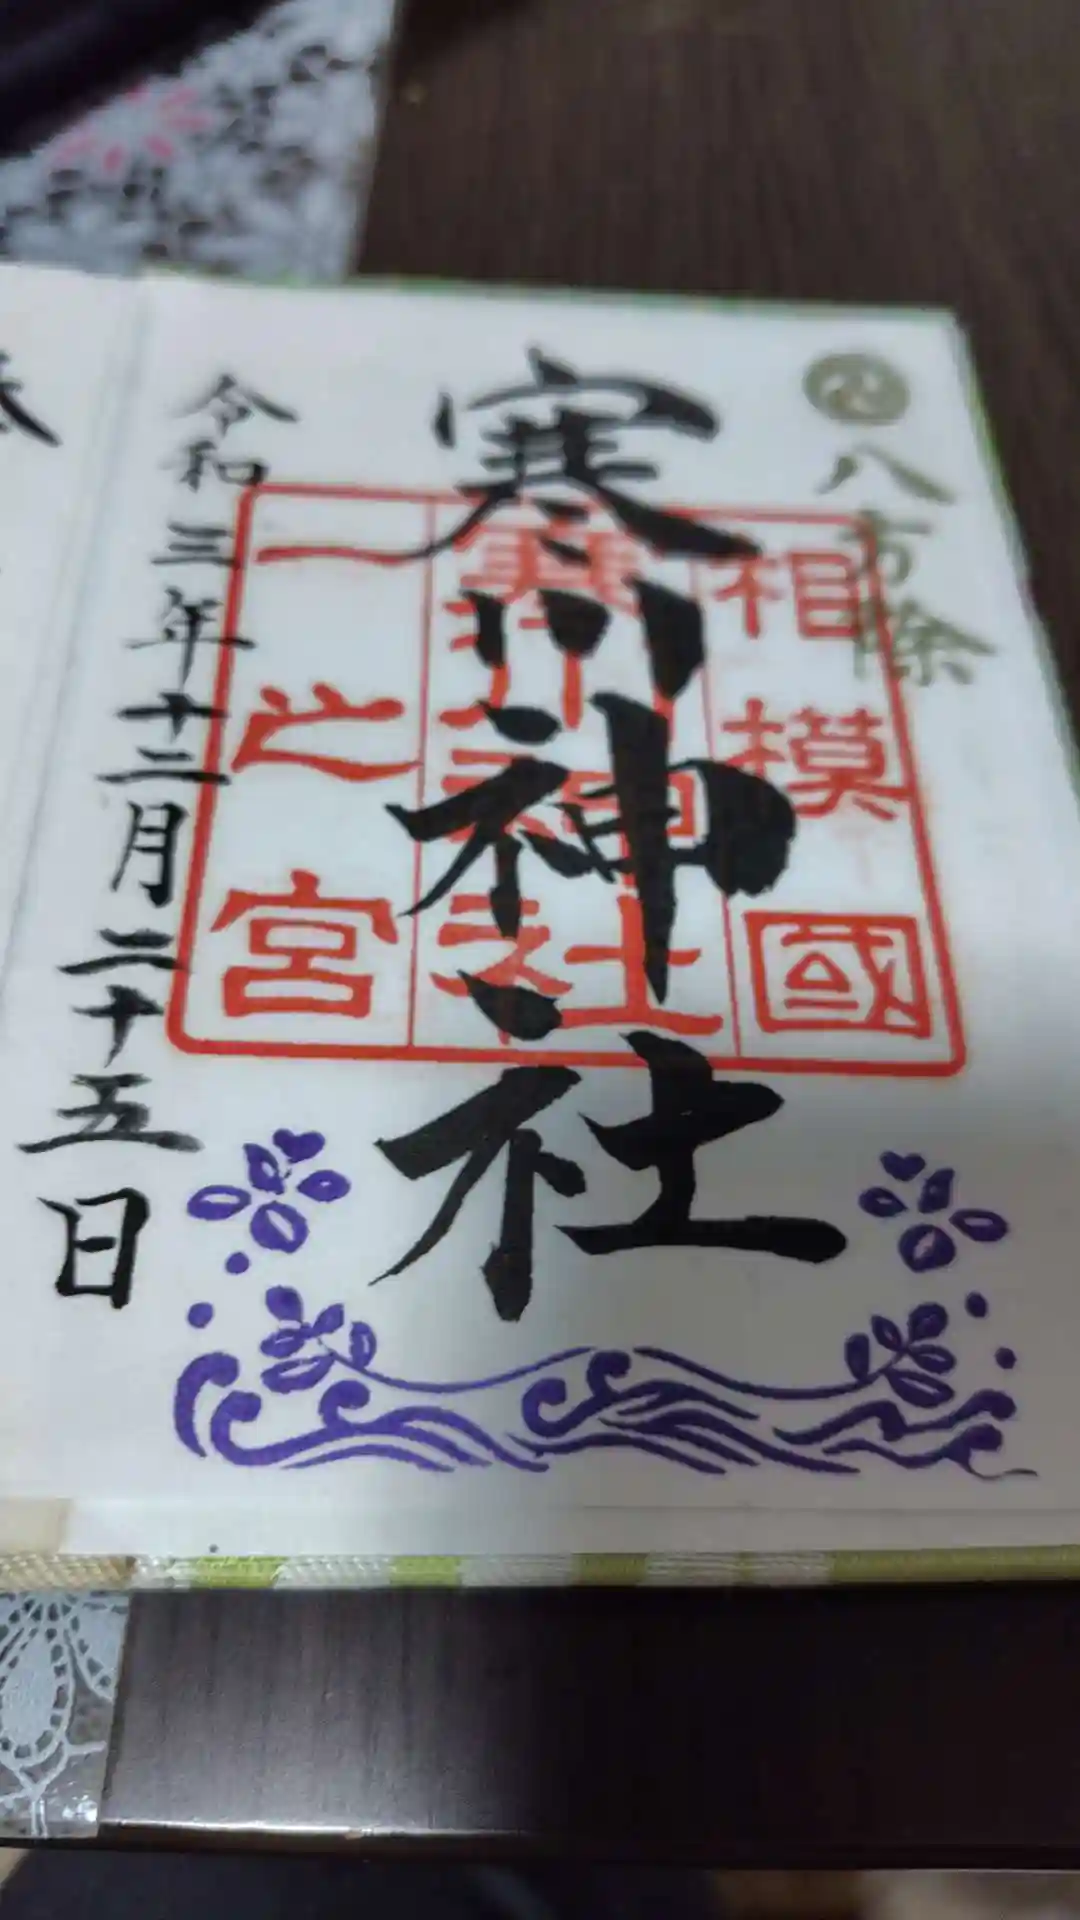 八方除
相模國
寒川神社
一之宮
寒川神社
令和三年十二月二十五日